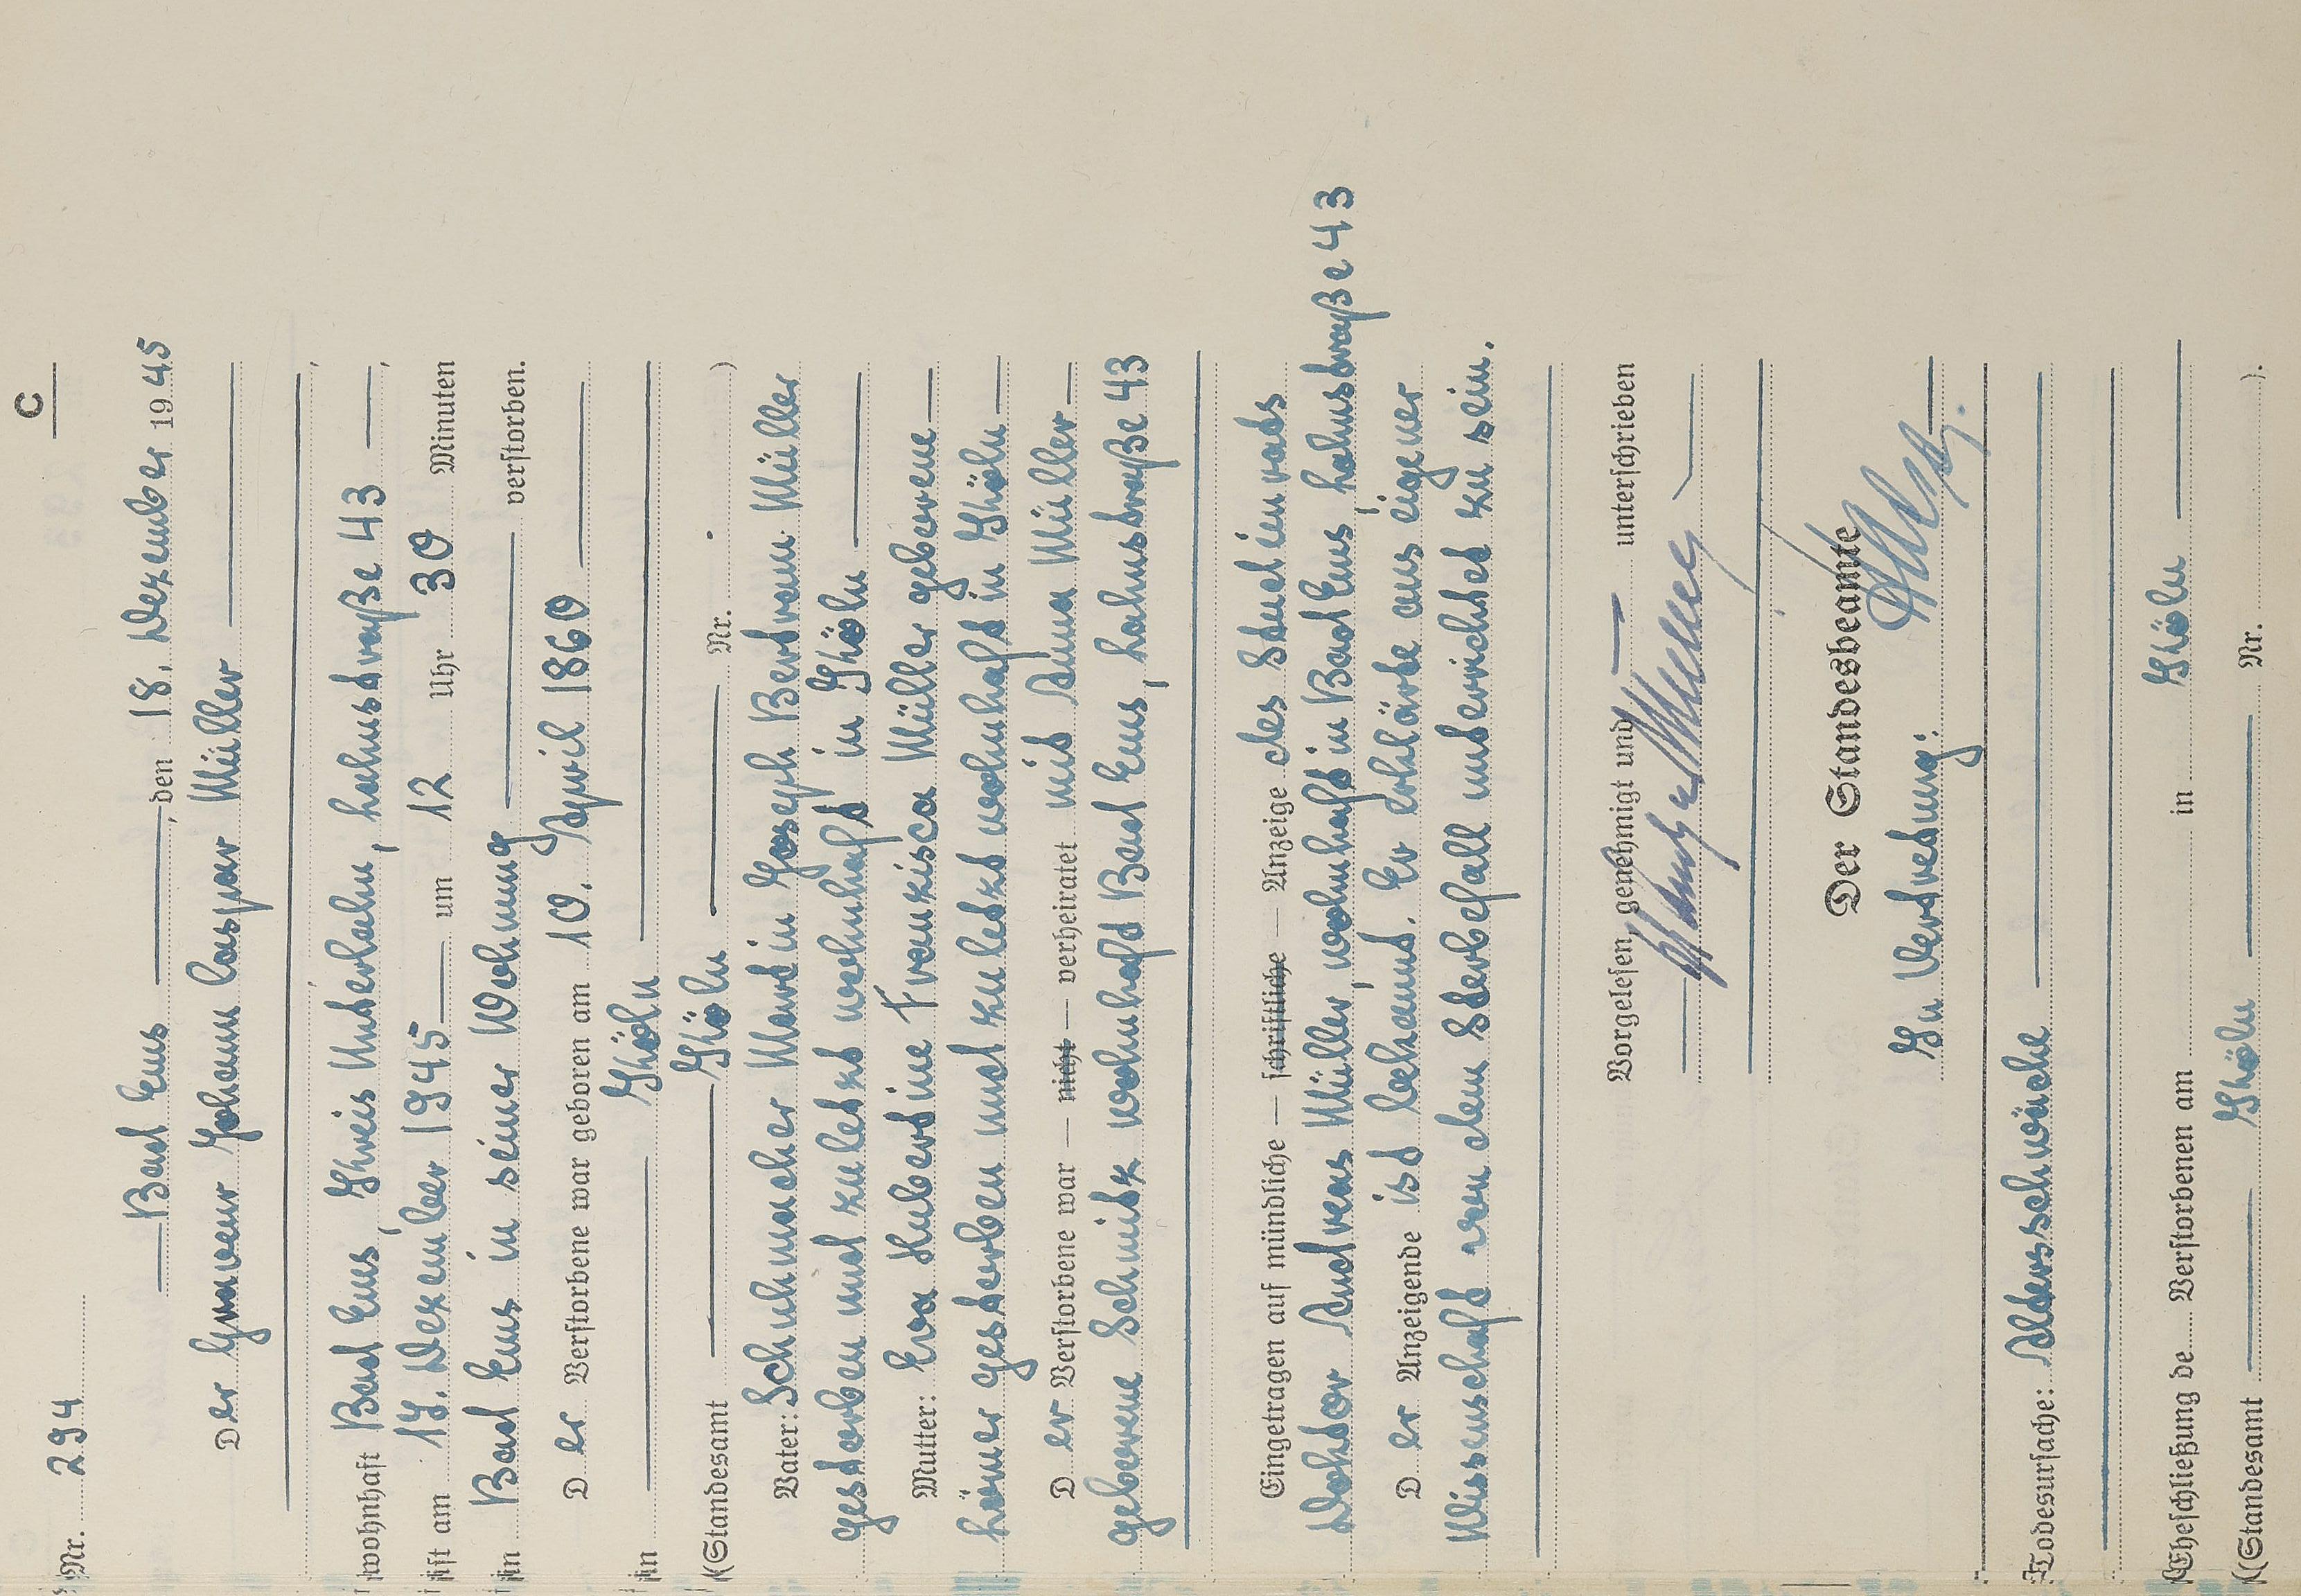 C
Nr. 294
Bad Ems, den 18. Dezember 1945
Der Graveur Johann Caspar Müller
wohnhaft Bad Ems, Kreis Unterlahn, Lahnstraße 43,
ist am 17. Dezember 1945 um 12 Uhr 30 Minuten
in Bad Ems in seiner Wohnung verstorben.
Der Verstorbene war geboren am 10. April 1860
in Köln
(Standesamt Köln Nr. )
Vater: Schuhmacher Martin Joseph Bertram Müller
gestorben und zuletzt wohnhaft in Köln
Mutter: Eva Hubertine Franzisca Müller geborene
gestorben und zuletzt wohnhaft in Köln
Der Verstorbene war — nicht — verheiratet mit Anna Müller
geborene Schmitz wohnhaft Bad Ems, Lahnstraße 43
Eingetragen auf mündliche — schriftliche — Anzeige des Studienrats
Doktor Andreas Müller, wohnhaft in Bad Ems, Lahnstraße 43
Der Anzeigende ist bekannt. Er erklärte aus eigener
Wissenschaft von dem Sterbefall unterrichtet zu sein.
Vorgelesen, genehmigt und unterschrieben
Der Standesbeamte
In Vertretung:
Todesursache: Altersschwäche
Eheschließung de Verstorbenen am in Köln
(Standesamt Köln Nr. ).